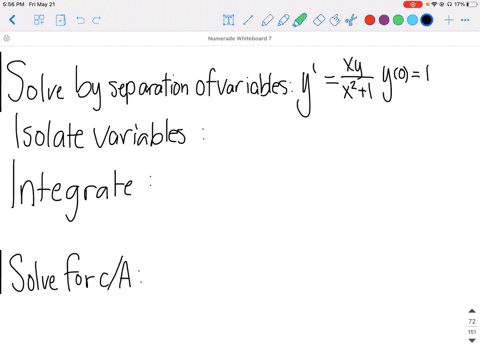 5:56 PM Fri May 21
17%
Numerade Whiteboard 7
Solve by separation of variables: y' = xy/x²+1 y(0) = 1
Isolate variables :
Integrate :
Solve for c/A :
72
151